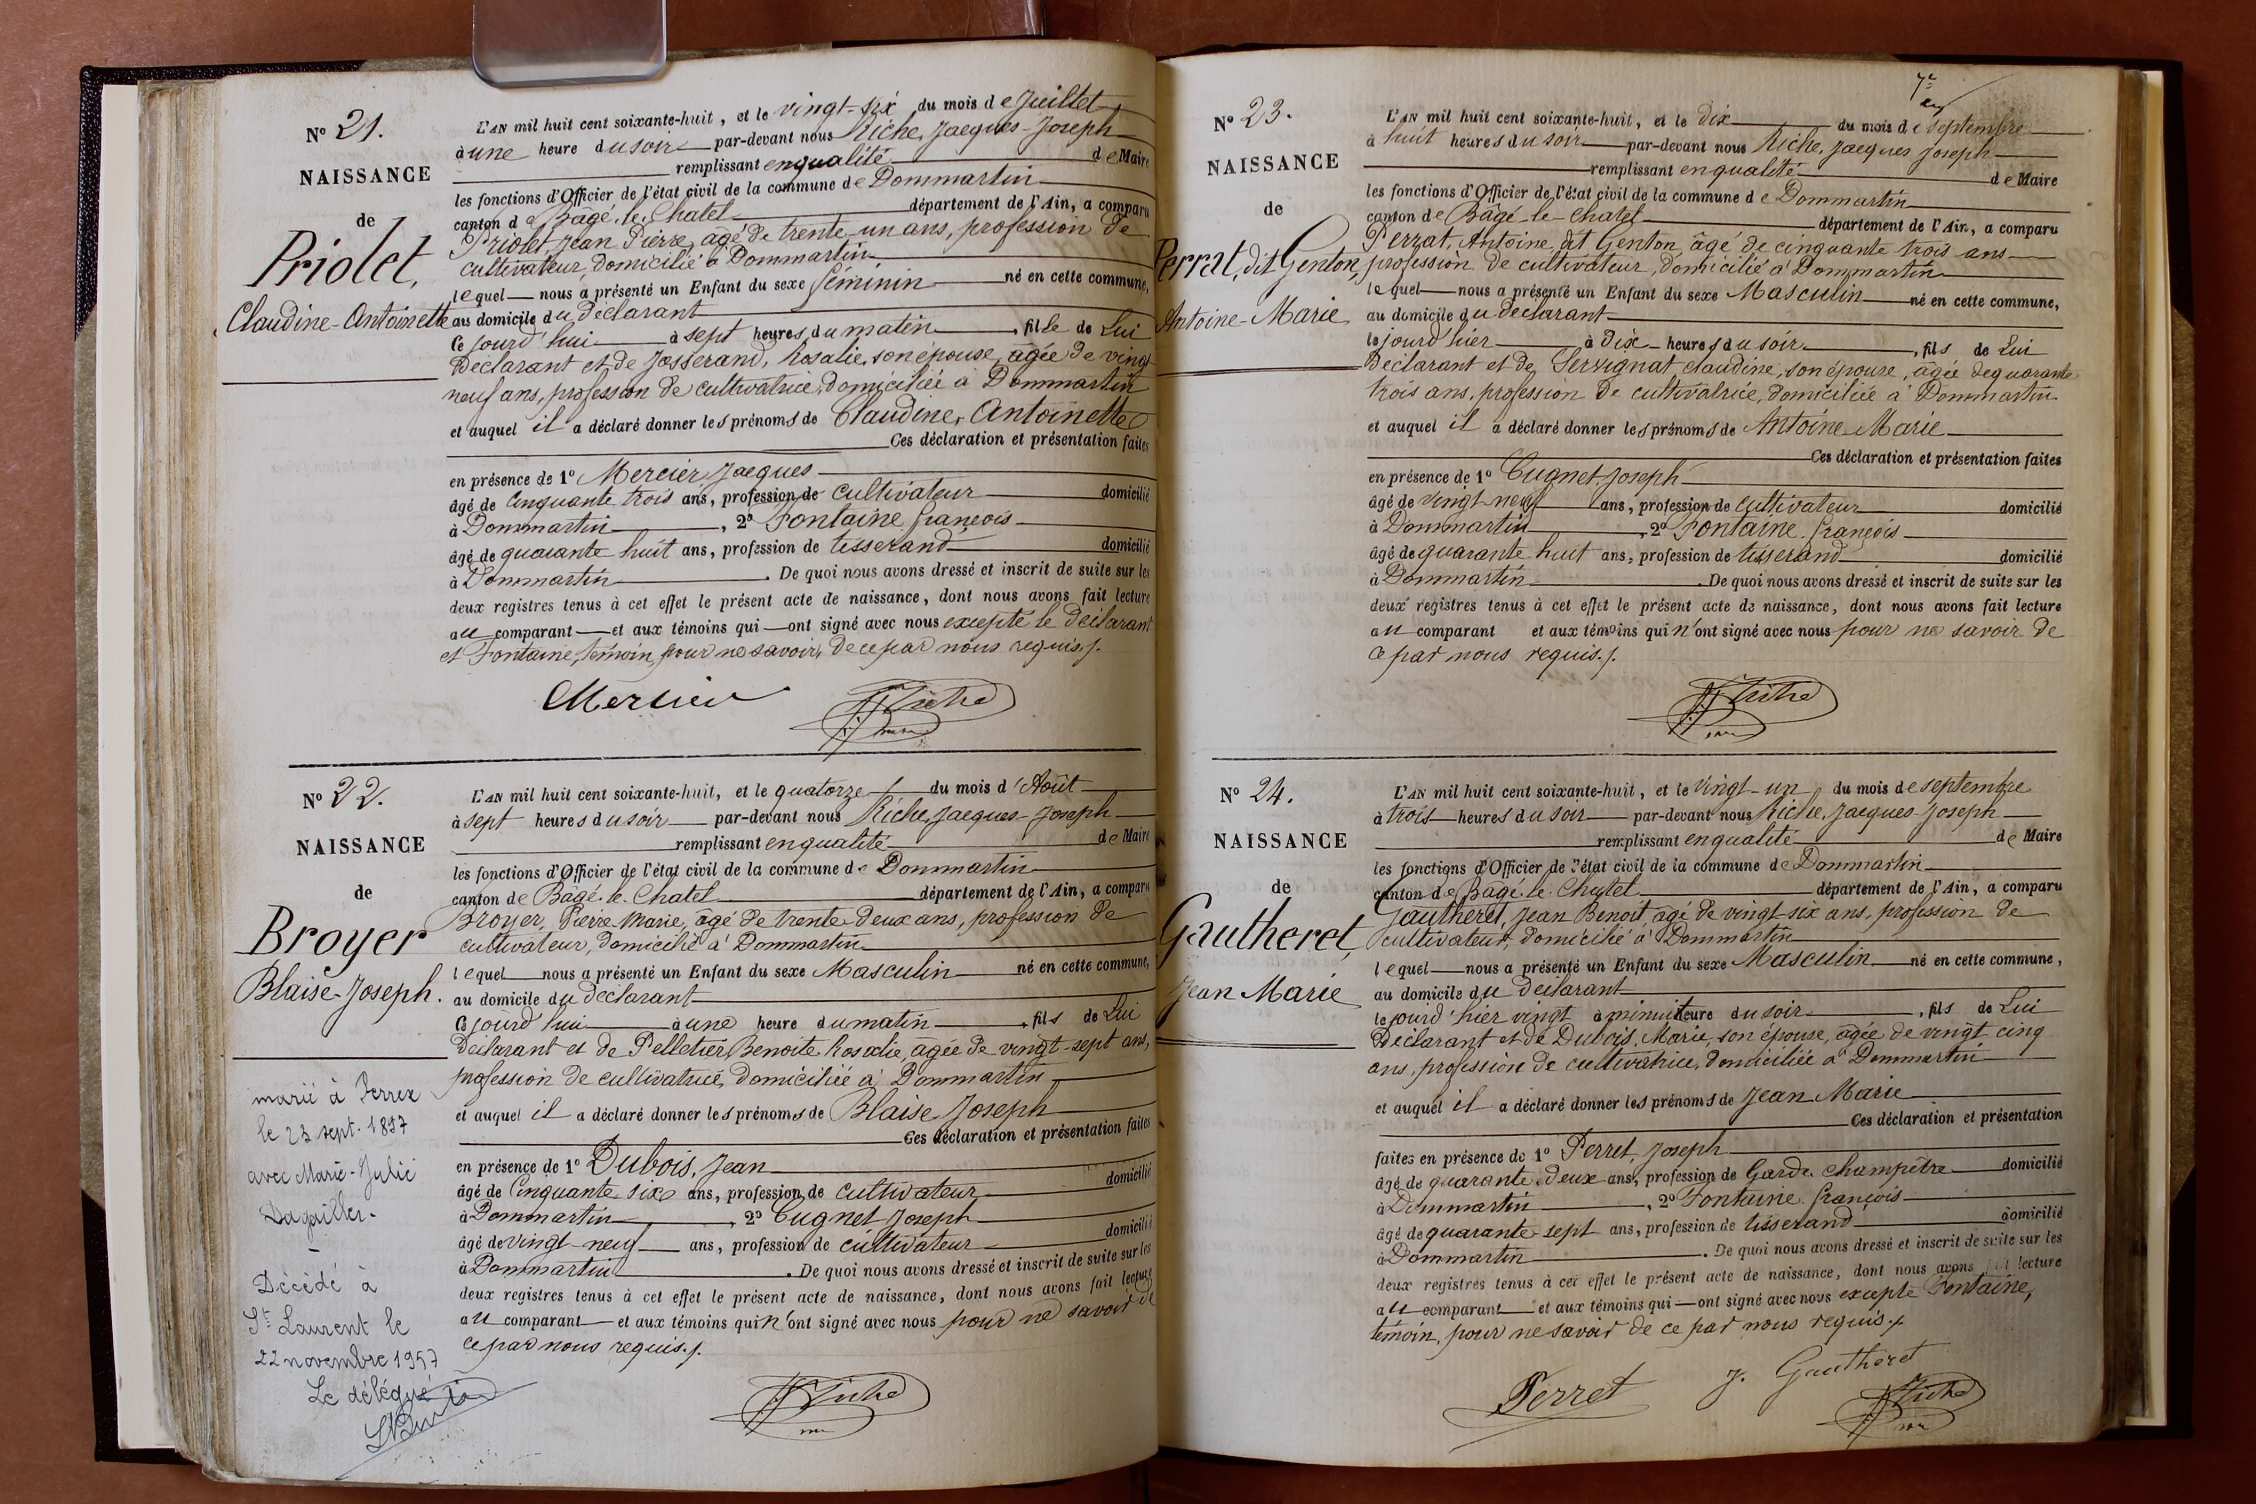 N° 21.
NAISSANCE
de
Priolet,
Claudine-Antoinette
L'AN mil huit cent soixante-huit, et le vingt-six du mois de Juillet
à une heure du soir par-devant nous Riche, Jacques-Joseph
remplissant en qualité de Maire
les fonctions d'Officier de l'état civil de la commune de Dommartin
canton de Bagé-le-Chatel département de l'Ain, a comparu
Priolet Jean Pierre, âgé de trente-un ans, profession de
cultivateur, domicilié à Dommartin
lequel nous a présenté un Enfant du sexe féminin né en cette commune,
au domicile du déclarant
ce jourd'hui à sept heures du matin, fille de Lui
Déclarant et de Josserand, Rosalie, son épouse, âgée de vingt
neuf ans, profession de cultivatrice, domiciliée à Dommartin
et auquel il a déclaré donner les prénoms de Claudine, Antoinette
Ces déclaration et présentation faites
en présence de 1° Mercier, Jacques
âgé de Cinquante trois ans, profession de cultivateur domicilié
à Dommartin, 2° Fontaine françois
âgé de quarante huit ans, profession de tisserand domicilié
à Dommartin. De quoi nous avons dressé et inscrit de suite sur les
deux registres tenus à cet effet le présent acte de naissance, dont nous avons fait lecture
au comparant et aux témoins qui ont signé avec nous excepté le déclarant
et Fontaine, témoin, pour ne savoir, de ce par nous requis./.
Mercier
JJ Riche
N° 22.
NAISSANCE
de
Broyer
Blaise-Joseph.
L'AN mil huit cent soixante-huit, et le quatorze du mois d'Août
à sept heures du soir par-devant nous Riche, Jacques-Joseph
remplissant en qualité de Maire
les fonctions d'Officier de l'état civil de la commune de Dommartin
canton de Bagé-le-Chatel département de l'Ain, a comparu
Broyer, Pierre-Marie, âgé de trente-deux ans, profession de
cultivateur, domicilié à Dommartin
lequel nous a présenté un Enfant du sexe Masculin né en cette commune,
au domicile du déclarant
ce jourd'hui à une heure du matin, fils de Lui
Déclarant et de Pelletier Benoite Rosalie, âgée de vingt-sept ans,
profession de cultivatrice, domiciliée à Dommartin
et auquel il a déclaré donner les prénoms de Blaise Joseph
Ces déclaration et présentation faites
en présence de 1° Dubois, Jean
âgé de Cinquante six ans, profession de cultivateur domicilié
à Dommartin, 2° Cugnet Joseph
âgé de vingt-neuf ans, profession de cultivateur domicilié
à Dommartin. De quoi nous avons dressé et inscrit de suite sur les
deux registres tenus à cet effet le présent acte de naissance, dont nous avons fait lecture
au comparant et aux témoins qui n'ont signé avec nous pour ne savoir de
ce par nous requis./.
JJ Riche
marié à Perrex
le 23 sept. 1897
avec Marie-Julie
Dagailler.
Décédé à
St Laurent le
22 novembre 1957
Le délégué
7e
N° 23.
NAISSANCE
de
Perrat, dit Genton,
Antoine-Marie
L'AN mil huit cent soixante-huit, et le dix du mois de septembre
à huit heures du soir par-devant nous Riche, Jacques Joseph
remplissant en qualité de Maire
les fonctions d'Officier de l'état civil de la commune de Dommartin
canton de Bâgé-le-Chatel département de l'Ain, a comparu
Perrat, Antoine, dit Genton, âgé de cinquante trois ans
profession de cultivateur, domicilié à Dommartin
lequel nous a présenté un Enfant du sexe Masculin né en cette commune,
au domicile du déclarant
le jourd'hier à dix heures du soir, fils de Lui
Déclarant et de Servignat, claudine, son épouse, âgée de quarante
trois ans, profession de cultivatrice, domiciliée à Dommartin
et auquel il a déclaré donner les prénoms de Antoine-Marie
Ces déclaration et présentation faites
en présence de 1° Cugnet, Joseph
âgé de vingt-neuf ans, profession de cultivateur domicilié
à Dommartin, 2° Fontaine, françois
âgé de quarante huit ans, profession de tisserand domicilié
à Dommartin. De quoi nous avons dressé et inscrit de suite sur les
deux registres tenus à cet effet le présent acte de naissance, dont nous avons fait lecture
au comparant et aux témoins qui n'ont signé avec nous pour ne savoir de
ce par nous requis./.
JJ Riche
N° 24.
NAISSANCE
de
Gautheret,
Jean Marie
L'AN mil huit cent soixante-huit, et le vingt-un du mois de septembre
à trois heures du soir par-devant nous Riche, Jacques Joseph
remplissant en qualité de Maire
les fonctions d'Officier de l'état civil de la commune de Dommartin
canton de Bagé-le-Chatel département de l'Ain, a comparu
Gautheret, Jean Benoit âgé de vingt-six ans, profession de
cultivateur, domicilié à Dommartin
lequel nous a présenté un Enfant du sexe Masculin né en cette commune,
au domicile du déclarant
le jourd'hier vingt à minuit heure du soir, fils de Lui
Déclarant et de Dubois, Marie, son épouse, âgée de vingt cinq
ans, profession de cultivatrice, domiciliée à Dommartin
et auquel il a déclaré donner les prénoms de Jean Marie
Ces déclaration et présentation
faites en présence de 1° Perret, Joseph
âgé de quarante-deux ans, profession de Garde champêtre domicilié
à Dommartin, 2° Fontaine, françois
âgé de quarante sept ans, profession de tisserand domicilié
à Dommartin. De quoi nous avons dressé et inscrit de suite sur les
deux registres tenus à cet effet le présent acte de naissance, dont nous avons fait lecture
au comparant et aux témoins qui ont signé avec nous excepté Fontaine,
témoin, pour ne savoir de ce par nous requis./.
Perret J. Gautheret
JJ Riche